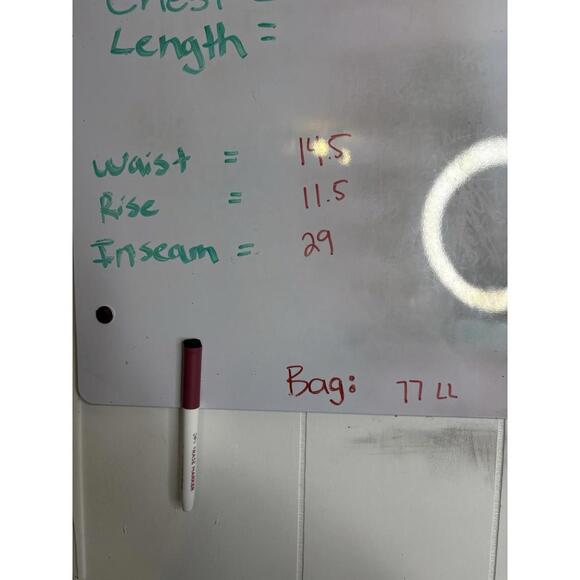 Chest =
Length =
Waist = 14.5
Rise = 11.5
Inseam = 29
Bag: 77 LL
ERASE MARKER